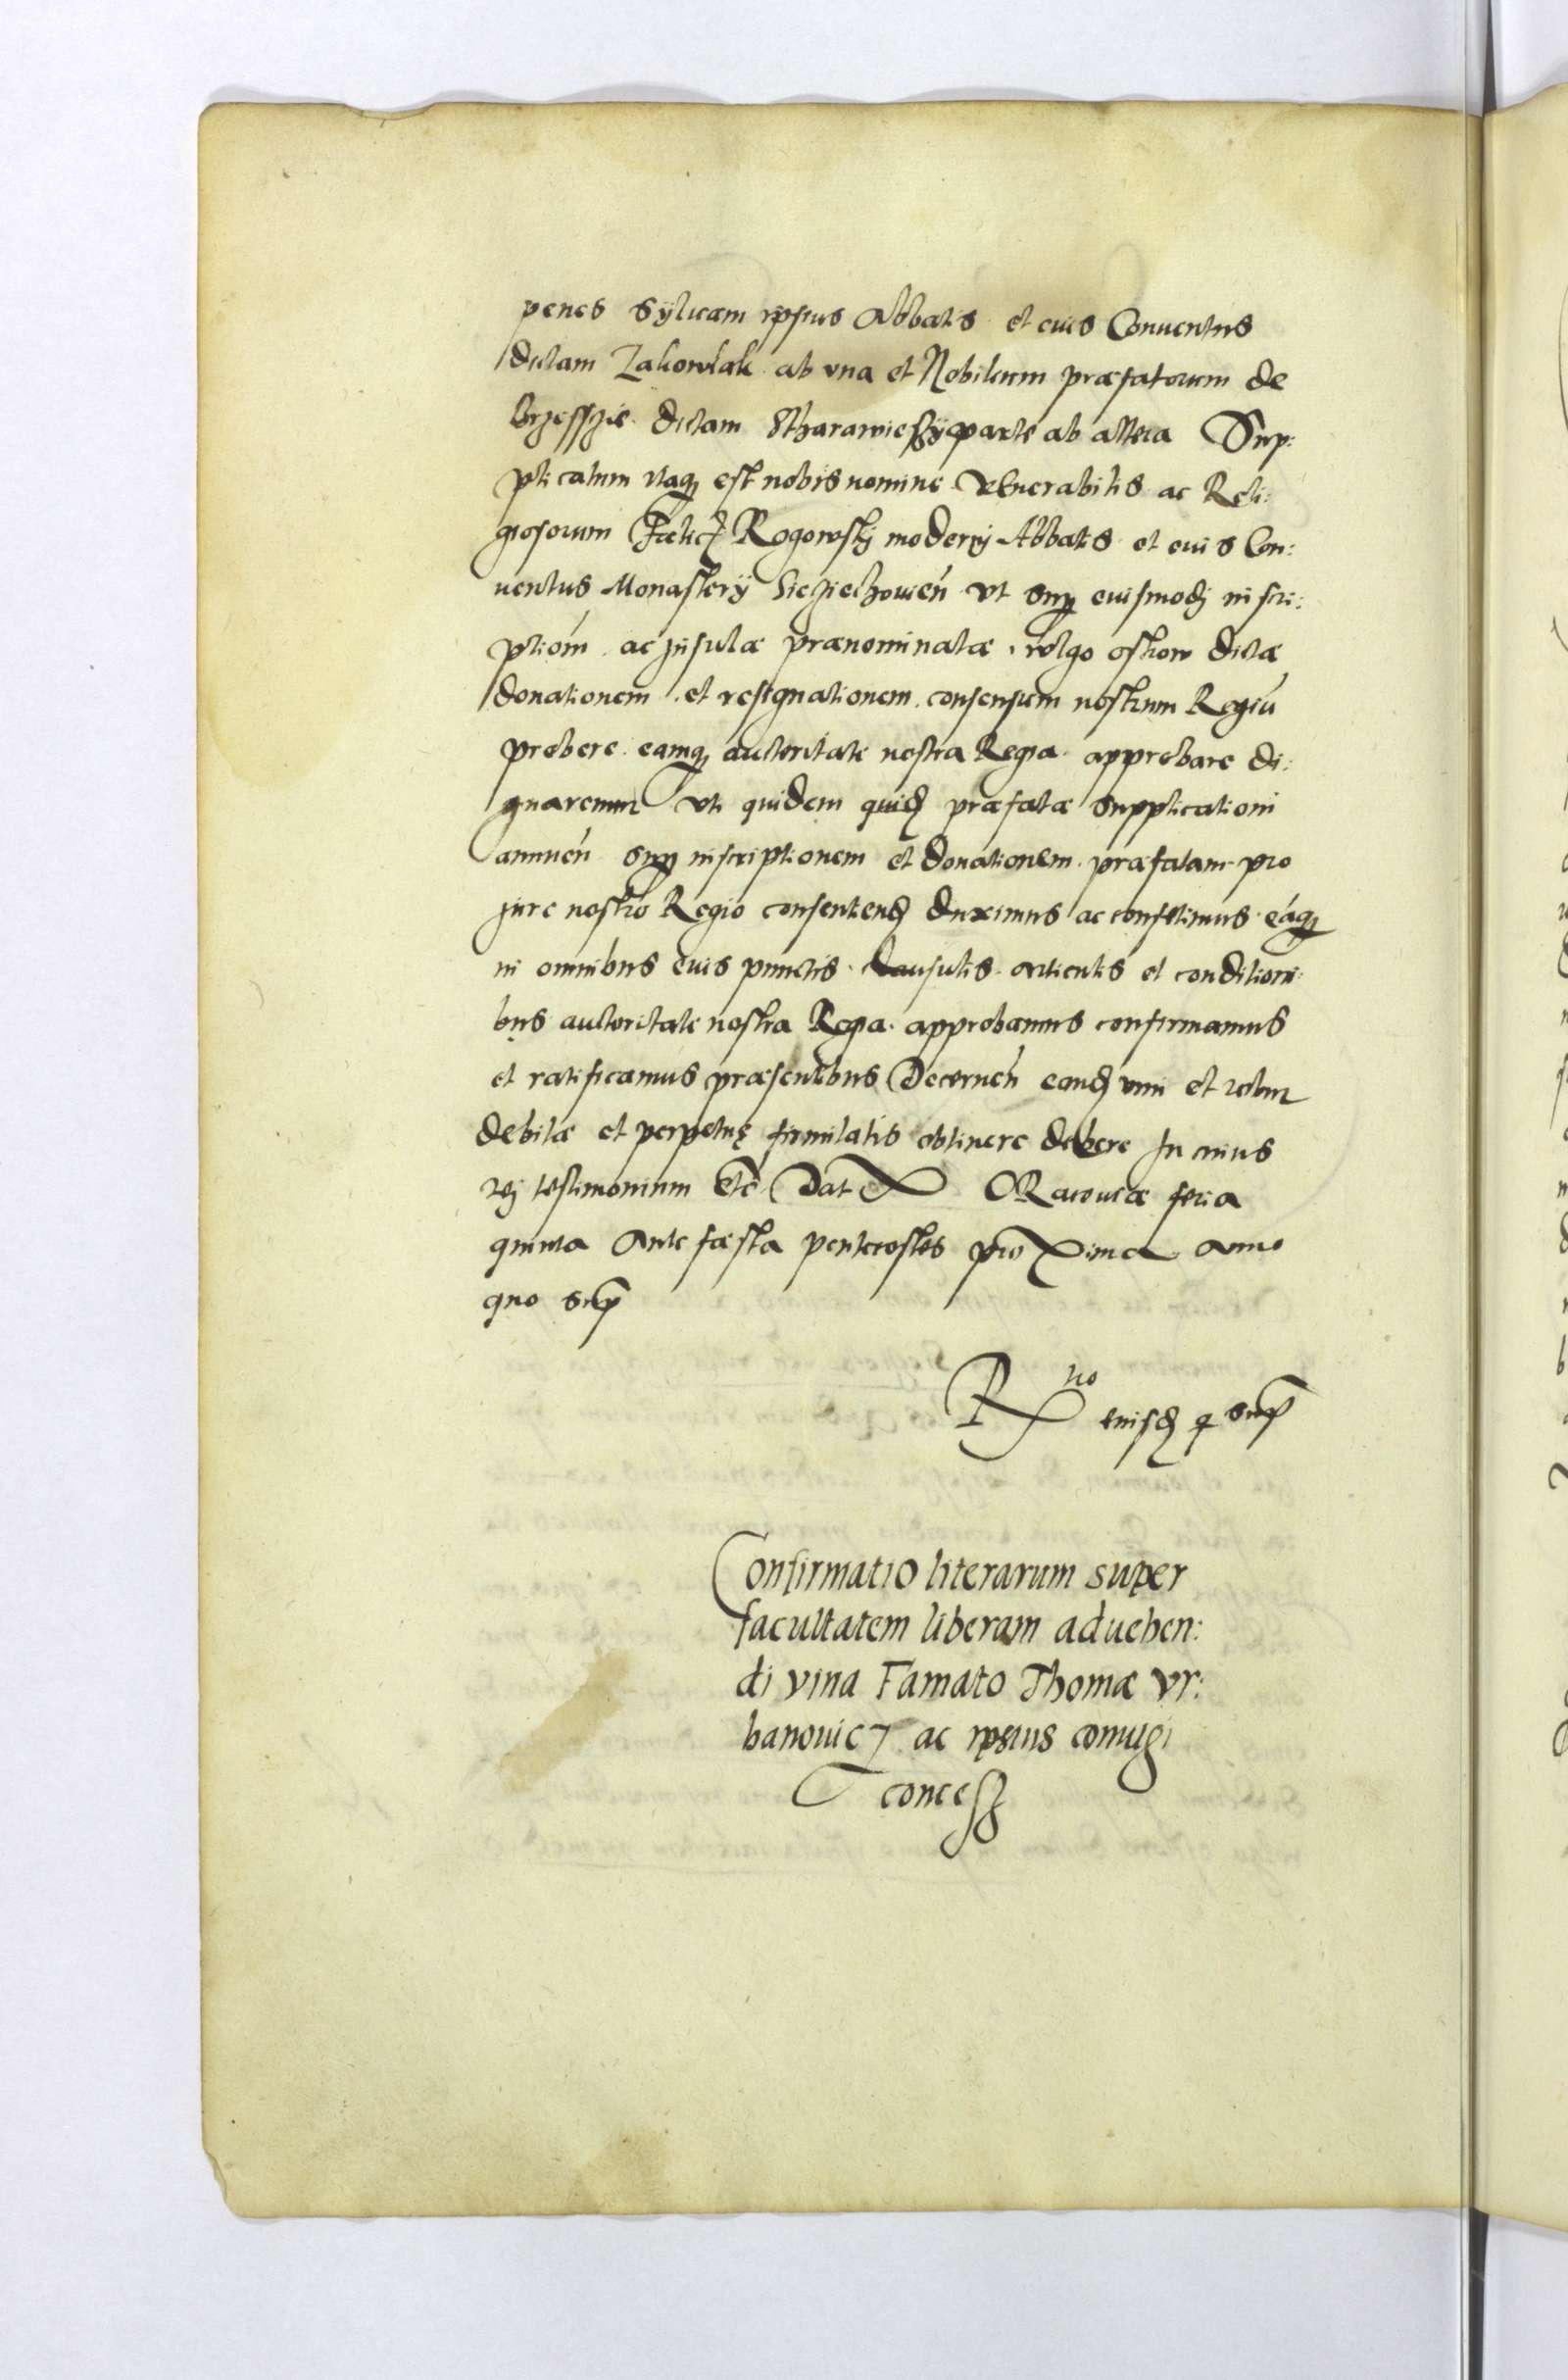 penes Sylvam ipsius Abbatis et eius Conuentus
dictam Zakowlak ab vna et Nobilium præfatorum de
Brzesszie dictam Stharawieszÿ parte ab altera Sup:
plicatum itaq est nobis nomine venerabilis ac Reli:
giosorum Felicis Rogowskj modernj Abbatis et eius Con:
uentus Monasterÿ Sieciechouien vt sup euismodj inscri:
ptiom ac jnsulæ prænominatæ volgo ostrow dictæ
donationem et resignationem consensum nostrum Regiu
prebere eamq autoritate nostra Regia approbare di:
gnaremur Vti quidem quid præfatæ supplicationi
annuen sup inscriptionem et donationem præfatam pro
jure nostro Regio consentiend duximus ac consentimus eaq
in omnibus euis punctis clausulis articulis et conditioni:
bus autoritate nostra Regia approbamus confirmamus
et ratificamus præsentibus Decernen eand vim et robur
debitæ et perpetuę firmitatis obtinere debere In cuius
rej testimonium etc Dat CRacouiæ feria
quinta Ante fæsta pentecostes proxima anno
quo sup
R no euisd q sup
Confirmatio literarum super
facultatem liberam aduehen:
di vina Famato Thomæ Vr:
banouicz ac ipsius coniugi
concess